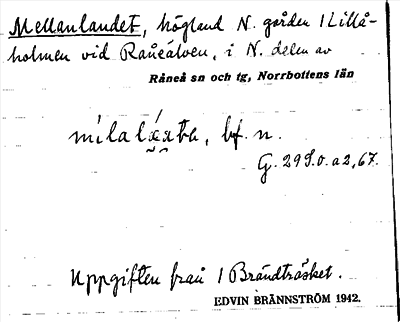 Mellanlandet, högland N. gården 1 Lillå-
holmen vid Råneälven, i N. delen av
Råneå sn och tg, Norrbottens län
bf. n.
G. 29 S.0. a2, 67.
Uppgiften från 1 Brändträsket.
EDVIN BRÄNNSTRÖM 1942.